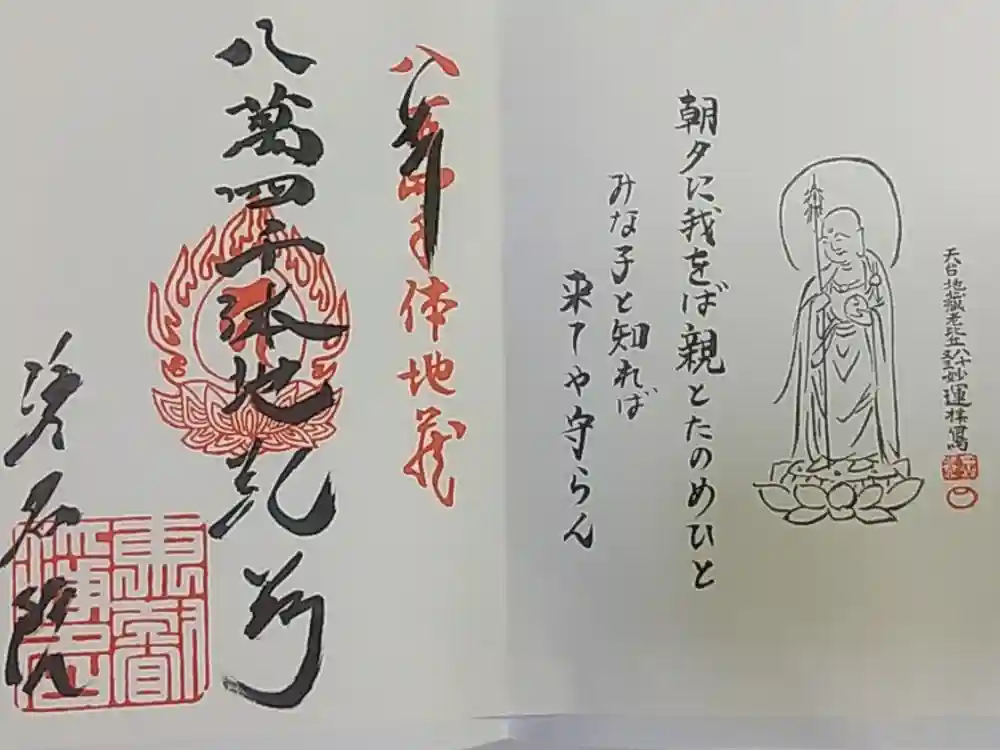 天台地蔵老比丘八十妙運拝寫
朝夕に我をば親とたのめひと
みな子と知れば
来てや守らん
体地蔵
八萬四千体地
浄名院
東叡